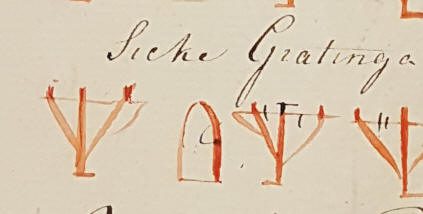 Sicke Gratinga